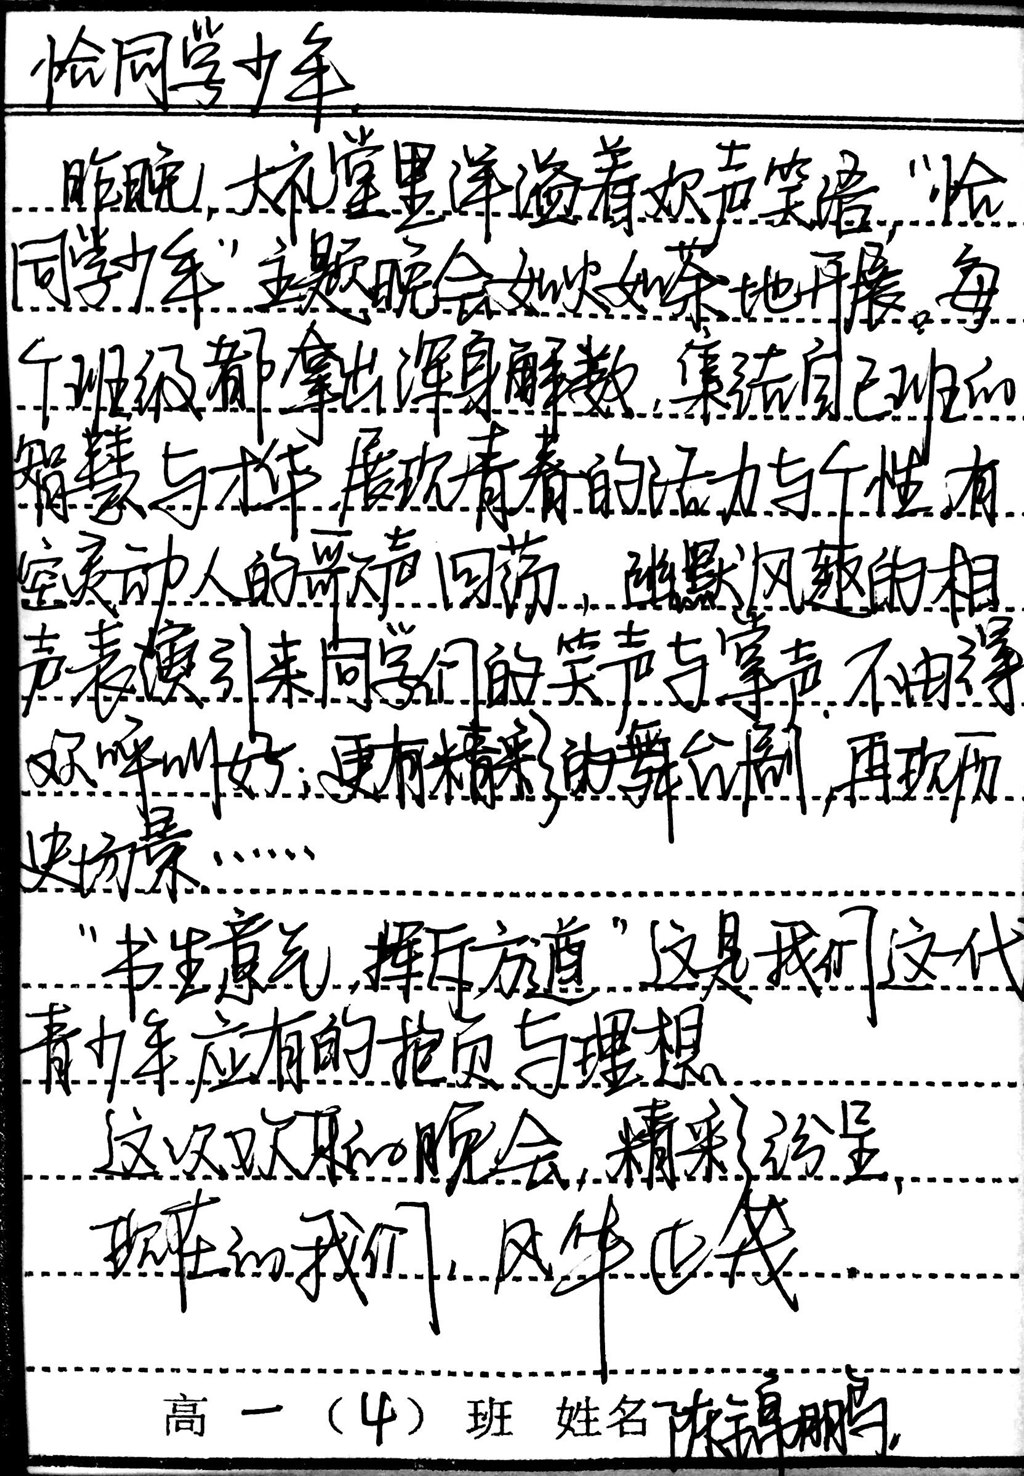 恰同学少年.
昨晚,大礼堂里洋溢着欢声笑语,“恰
同学少年”主题晚会如火如荼地开展。每
个班级都拿出浑身解数,集结自己班的
智慧与才华,展现青春的活力与个性。有
空灵动人的歌声回荡,幽默风趣的相
声表演引来同学们的笑声与掌声,不由得
欢呼叫好;更有精彩的舞台剧,再现历
史场景……
“书生意气,挥斥方遒”这是我们这一代
青少年应有的抱负与理想。
这次欢聚的晚会,精彩纷呈,
现在的我们,风华正茂.
高一(4)班 姓名 陈锦鹏.